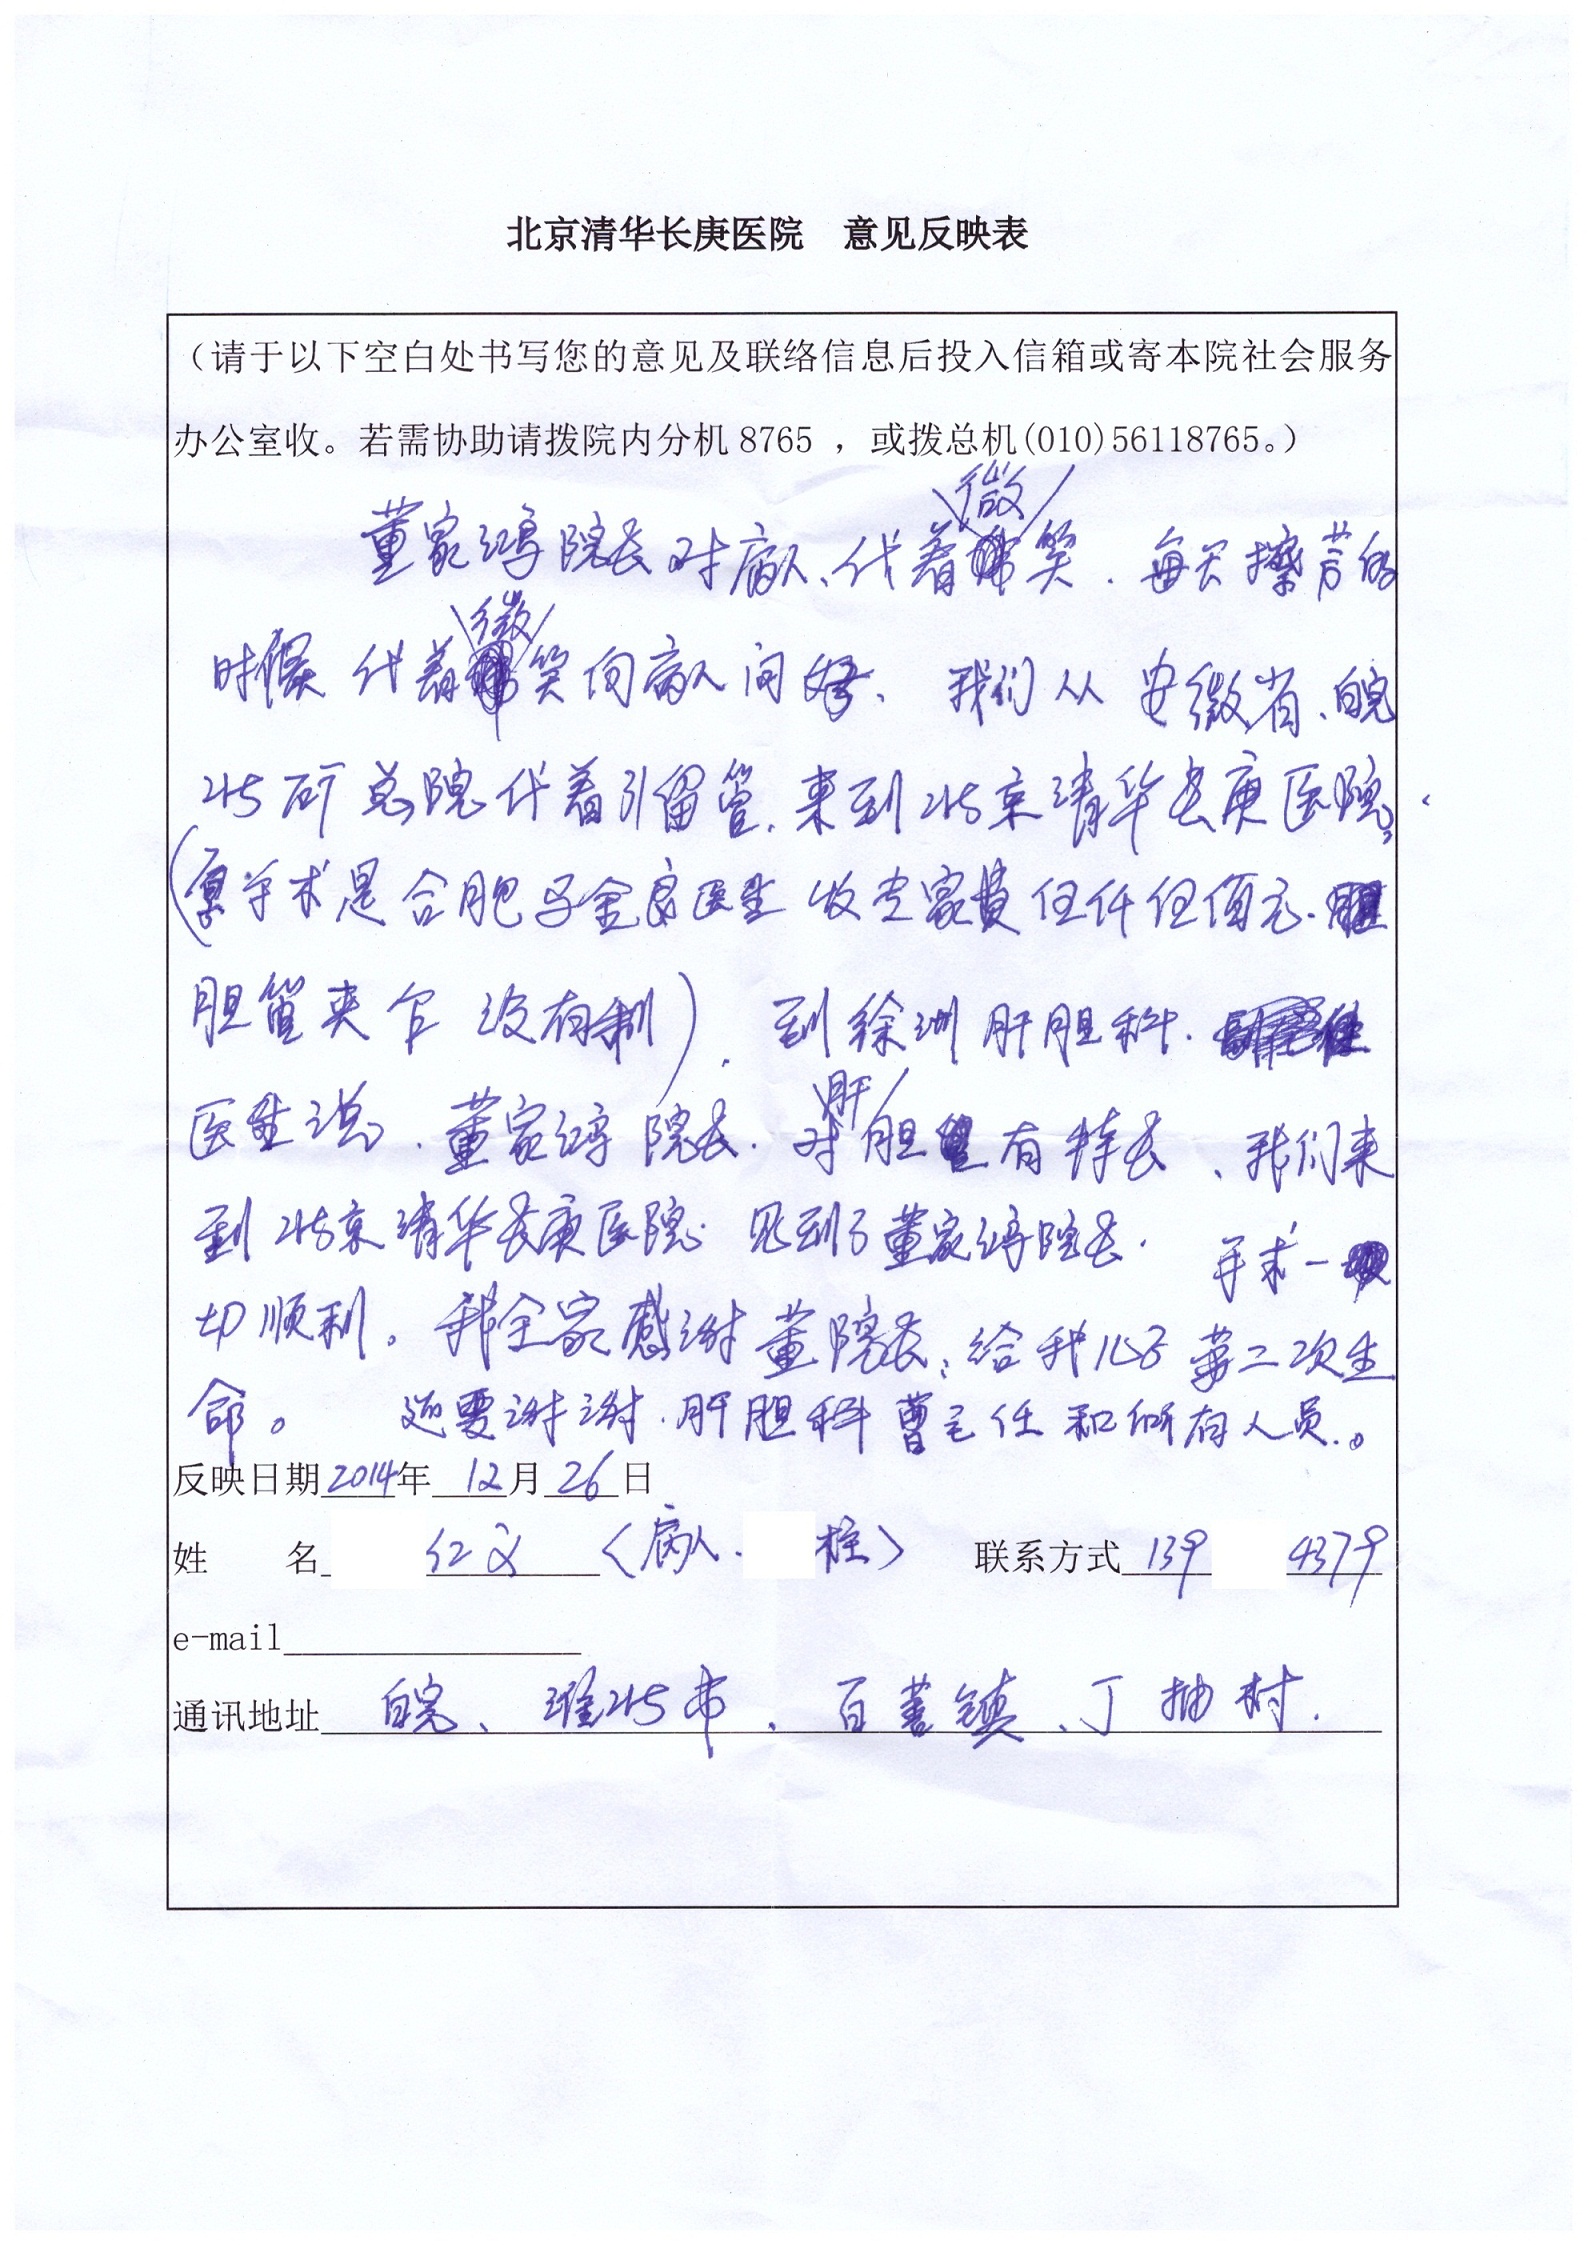 北京清华长庚医院 意见反映表
（请于以下空白处书写您的意见及联络信息后投入信箱或寄本院社会服务
办公室收。若需协助请拨院内分机 8765 ，或拨总机(010)56118765。）
董家鸿院长对病人、代着微笑．每天擦芳的
时候 代着微笑向病人问好、我们从 安徽省、皖
北矿总院代着引留管．来到北京清华长庚医院，
(原手术是合肥 金良医生 收专家费伍仟伍佰元．
胆管夹 没有制)．到徐洲肝胆科．
医生说．董家鸿院长．对肝胆有特长、我们来
到北京清华长庚医院．见到了董家鸿院长．手术一
切顺利。我全家感谢董院长，给我儿子第二次生
命。 还要谢谢．肝胆科曹主任和所有人员。
反映日期2014年12月26日
姓 名 仁义〈病人． 柱〉 联系方式139 4379
e-mail
通讯地址 皖、淮北市、百善镇、丁抽村．